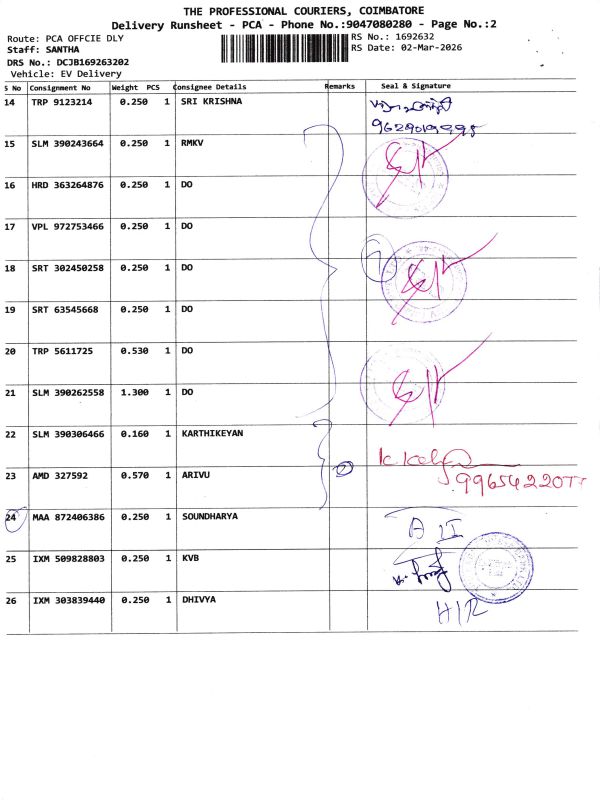 THE PROFESSIONAL COURIERS, COIMBATORE
Delivery Runsheet - PCA - Phone No.:9047080280 - Page No.:2
Route: PCA OFFCIE DLY
Staff: SANTHA
DRS No.: DCJB169263202
Vehicle: EV Delivery
RS No.: 1692632
RS Date: 02-Mar-2026
S No Consignment No Weight PCS Consignee Details Remarks Seal & Signature
14 TRP 9123214 0.250 1 SRI KRISHNA
15 SLM 390243664 0.250 1 RMKV
16 HRD 363264876 0.250 1 DO
17 VPL 972753466 0.250 1 DO
18 SRT 302450258 0.250 1 DO
19 SRT 63545668 0.250 1 DO
20 TRP 5611725 0.530 1 DO
21 SLM 390262558 1.300 1 DO
22 SLM 390306466 0.160 1 KARTHIKEYAN
23 AMD 327592 0.570 1 ARIVU 2
24 MAA 872406386 0.250 1 SOUNDHARYA
25 IXM 509828803 0.250 1 KVB
26 IXM 303839440 0.250 1 DHIVYA